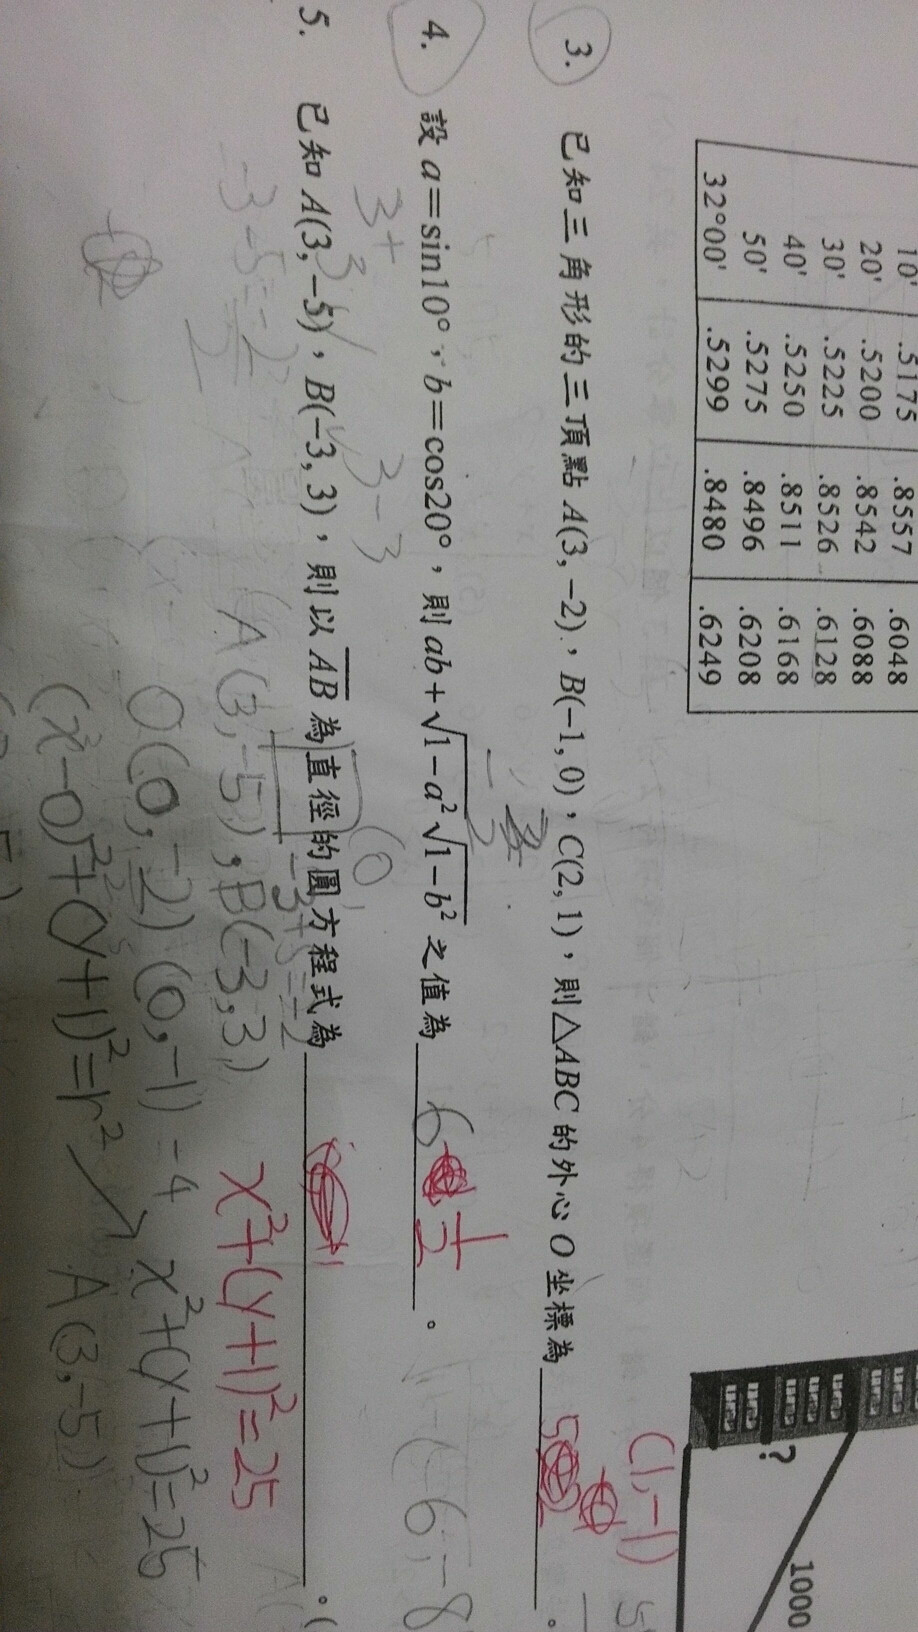 10' .5175 .8557 .6048
20' .5200 .8542 .6088
30' .5225 .8526 .6128
40' .5250 .8511 .6168
50' .5275 .8496 .6208
32°00' .5299 .8480 .6249
?
1000
(1,-1)
3. 已知三角形的三頂點 A(3, −2)、B(−1, 0)、C(2, 1),則△ABC 的外心 O 坐標為 。
4. 設 a=sin10°,b=cos20°,則 ab+√1−a² √1−b² 之值為 。
1/2
-6,-8
3+ 3-3
5. 已知 A(3, −5)、B(−3, 3),則以 AB 為直徑的圓方程式為 。(
-3-5=-2
A(3,-5), B(-3,3)
x²+(y+1)²=25
O(0,-2) (0,-1) -4 x²+(y+1)²=25
(x-0)²+(y+1)²=r² A(3,-5)